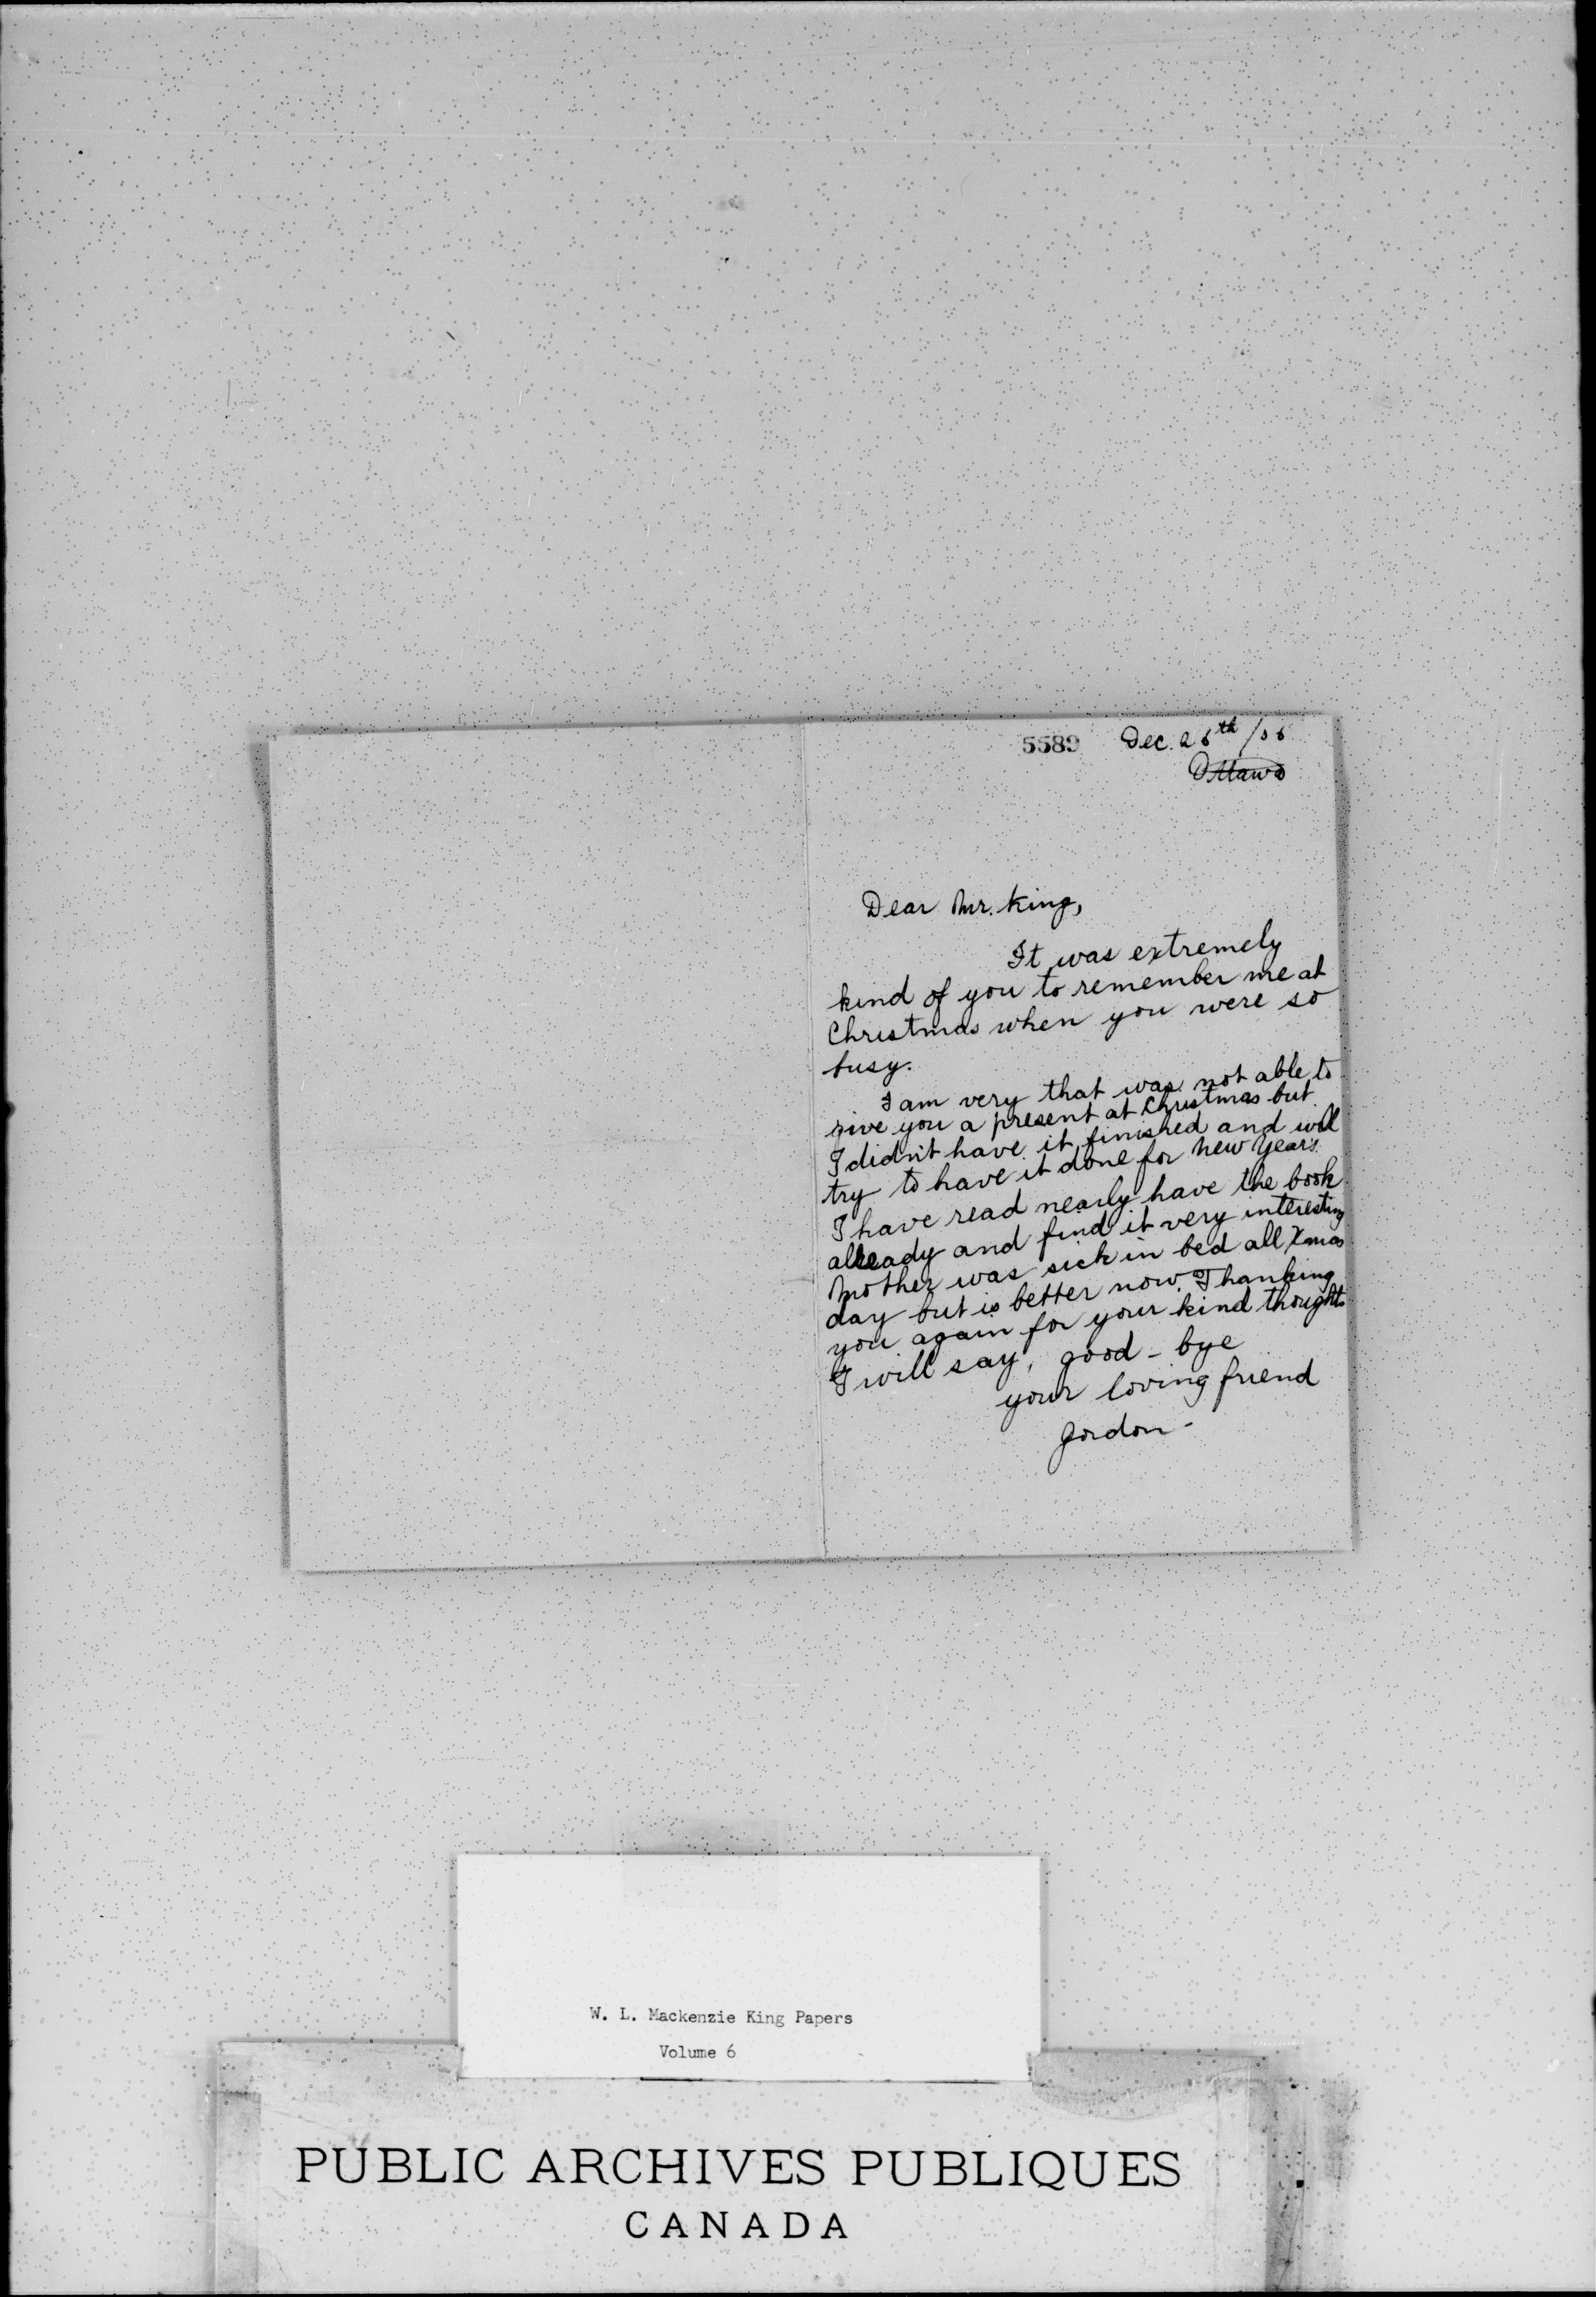 5589 Dec. 26th /06
Ottawa
Dear Mr. King,
It was extremely
kind of you to remember me at
Christmas when you were so
busy.
I am very that was not able to
give you a present at Christmas but
I didn't have it finished and will
try to have it done for New Year's.
I have read nearly have the book
already and find it very interesting
Mother was sick in bed all Xmas
day but is better now. Thanking
you again for your kind thoughts
I will say, good-bye
your loving friend
Gordon-
W. L. Mackenzie King Papers
Volume 6
PUBLIC ARCHIVES PUBLIQUES
CANADA